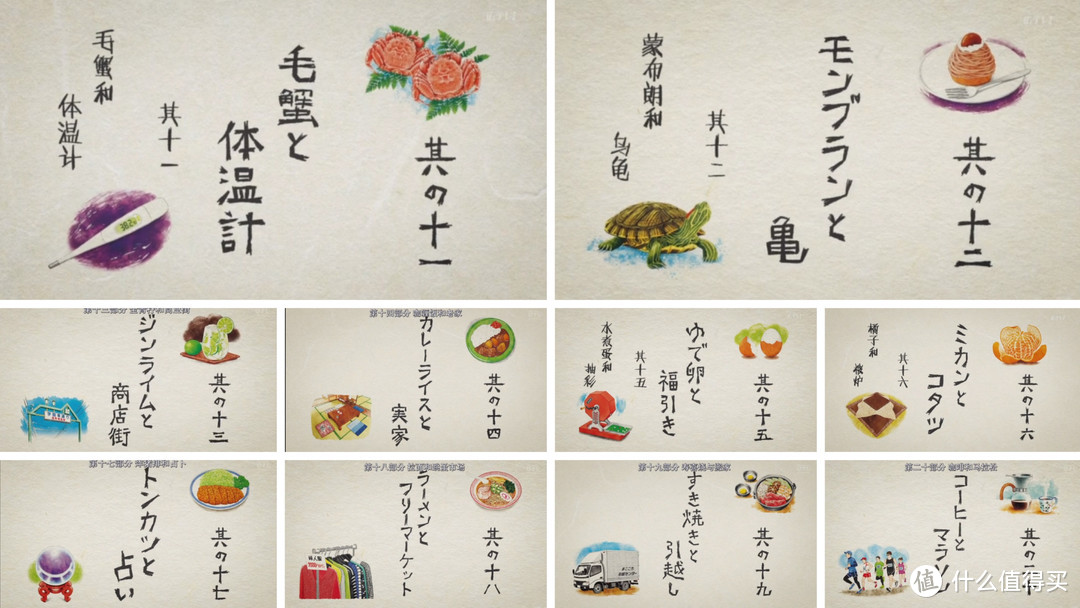 其の十一
毛蟹と
体温計
其十一
毛蟹和
体温计
其の十二
モンブランと
亀
其十二
蒙布朗和
乌龟
第十三部分
其の十三
ジンライムと
商店街
第十四部分 咖喱饭和老家
其の十四
カレーライスと
実家
其の十五
ゆで卵と
福引き
其十五
水煮蛋和
抽彩
其の十六
ミカンと
コタツ
其十六
橘子和
第十七部分 炸猪排和占卜
其の十七
トンカツと
占い
第十八部分 拉面和跳蚤市场
其の十八
ラーメンと
フリーマーケット
第十九部分 寿喜烧与搬家
其の十九
すき焼きと
引越し
第二十部分 咖啡和马拉松
其の二十
コーヒーと
マラソン
值 什么值得买